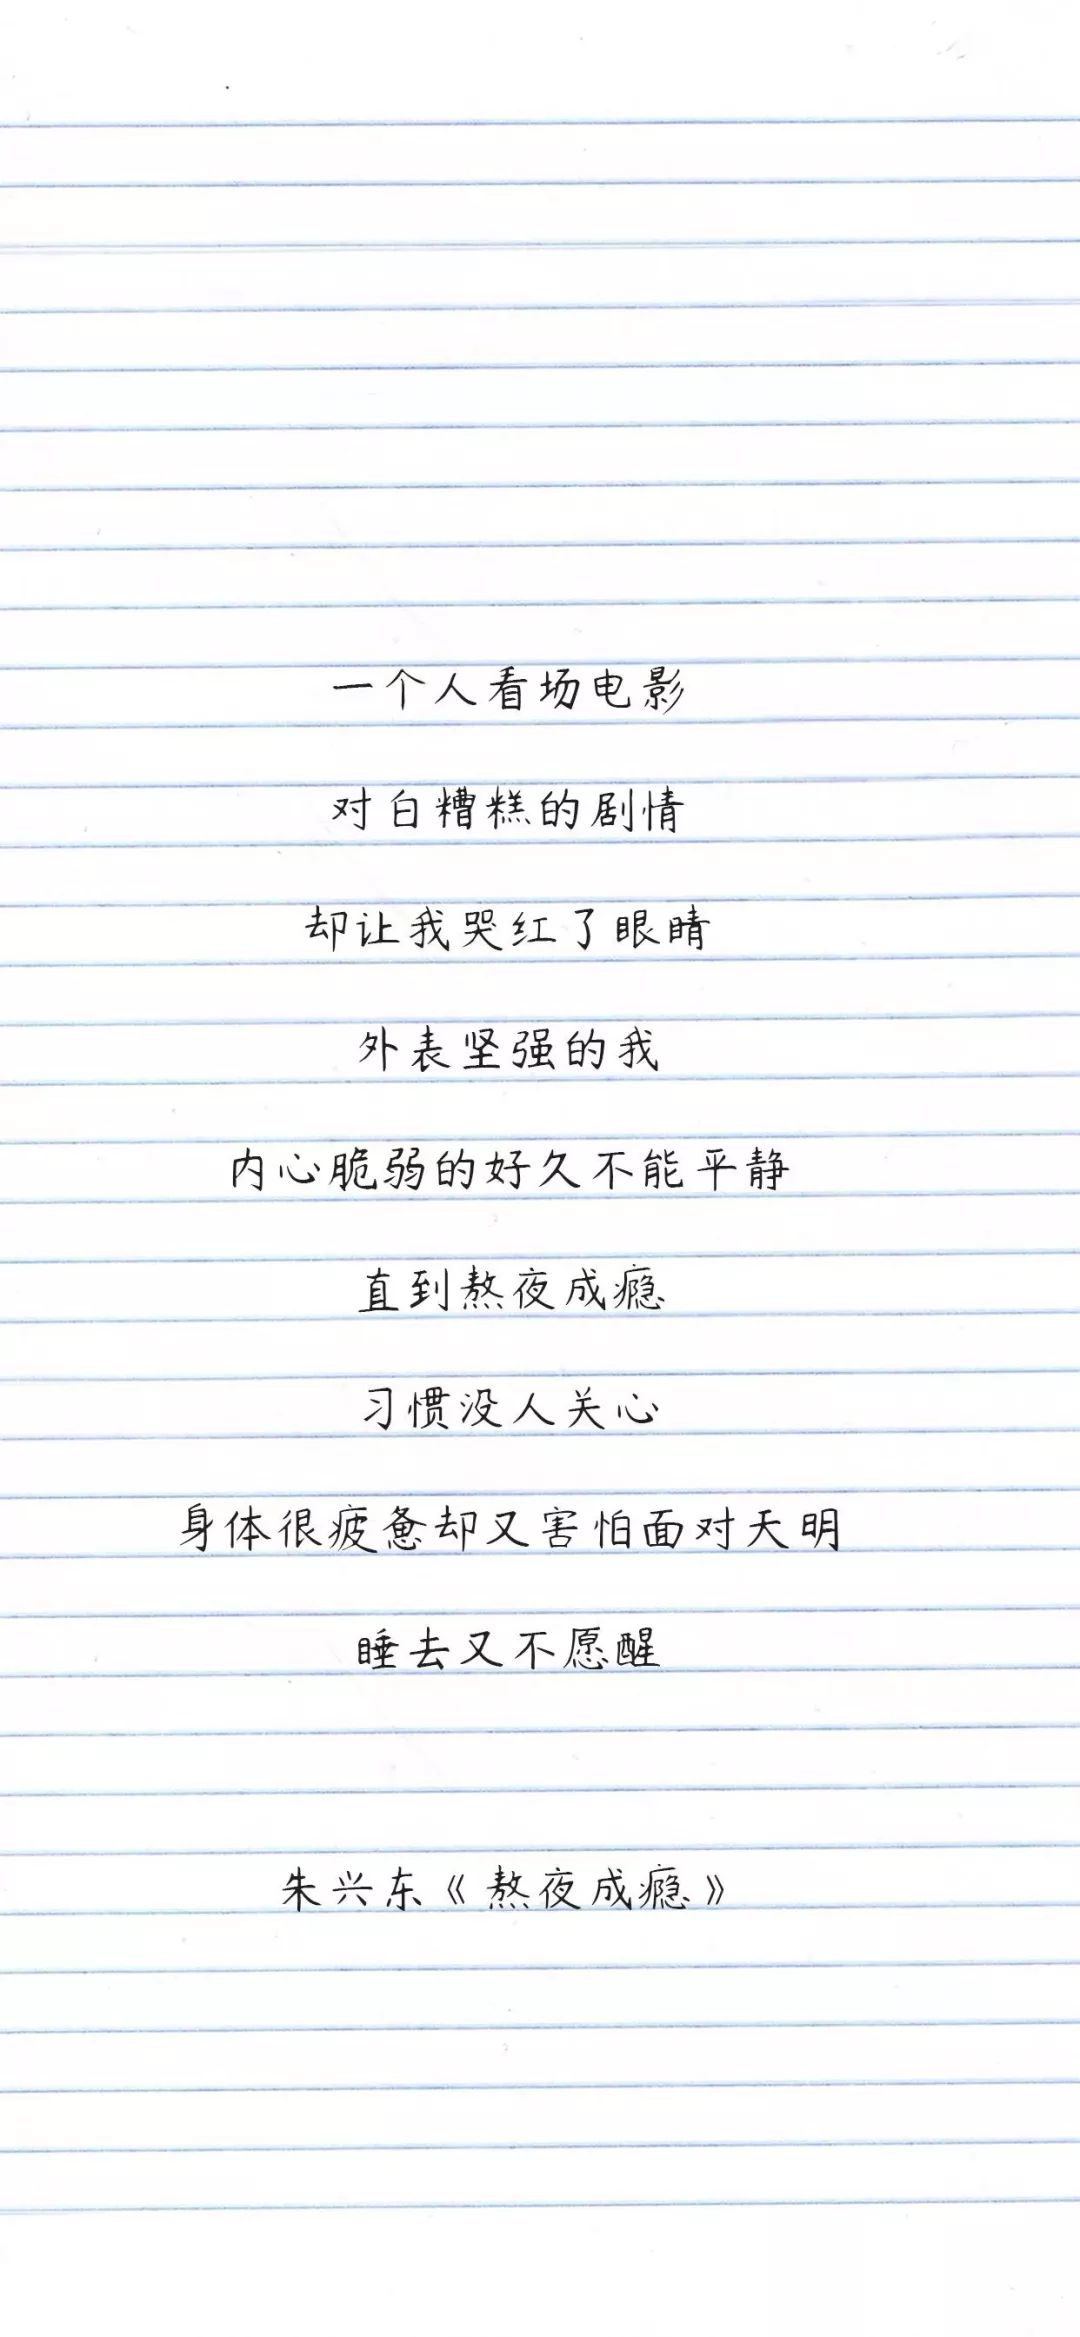 一个人看场电影
对白糟糕的剧情
却让我哭红了眼睛
外表坚强的我
内心脆弱的好久不能平静
直到熬夜成瘾
习惯没人关心
身体很疲惫却又害怕面对天明
睡去又不愿醒
朱兴东《熬夜成瘾》